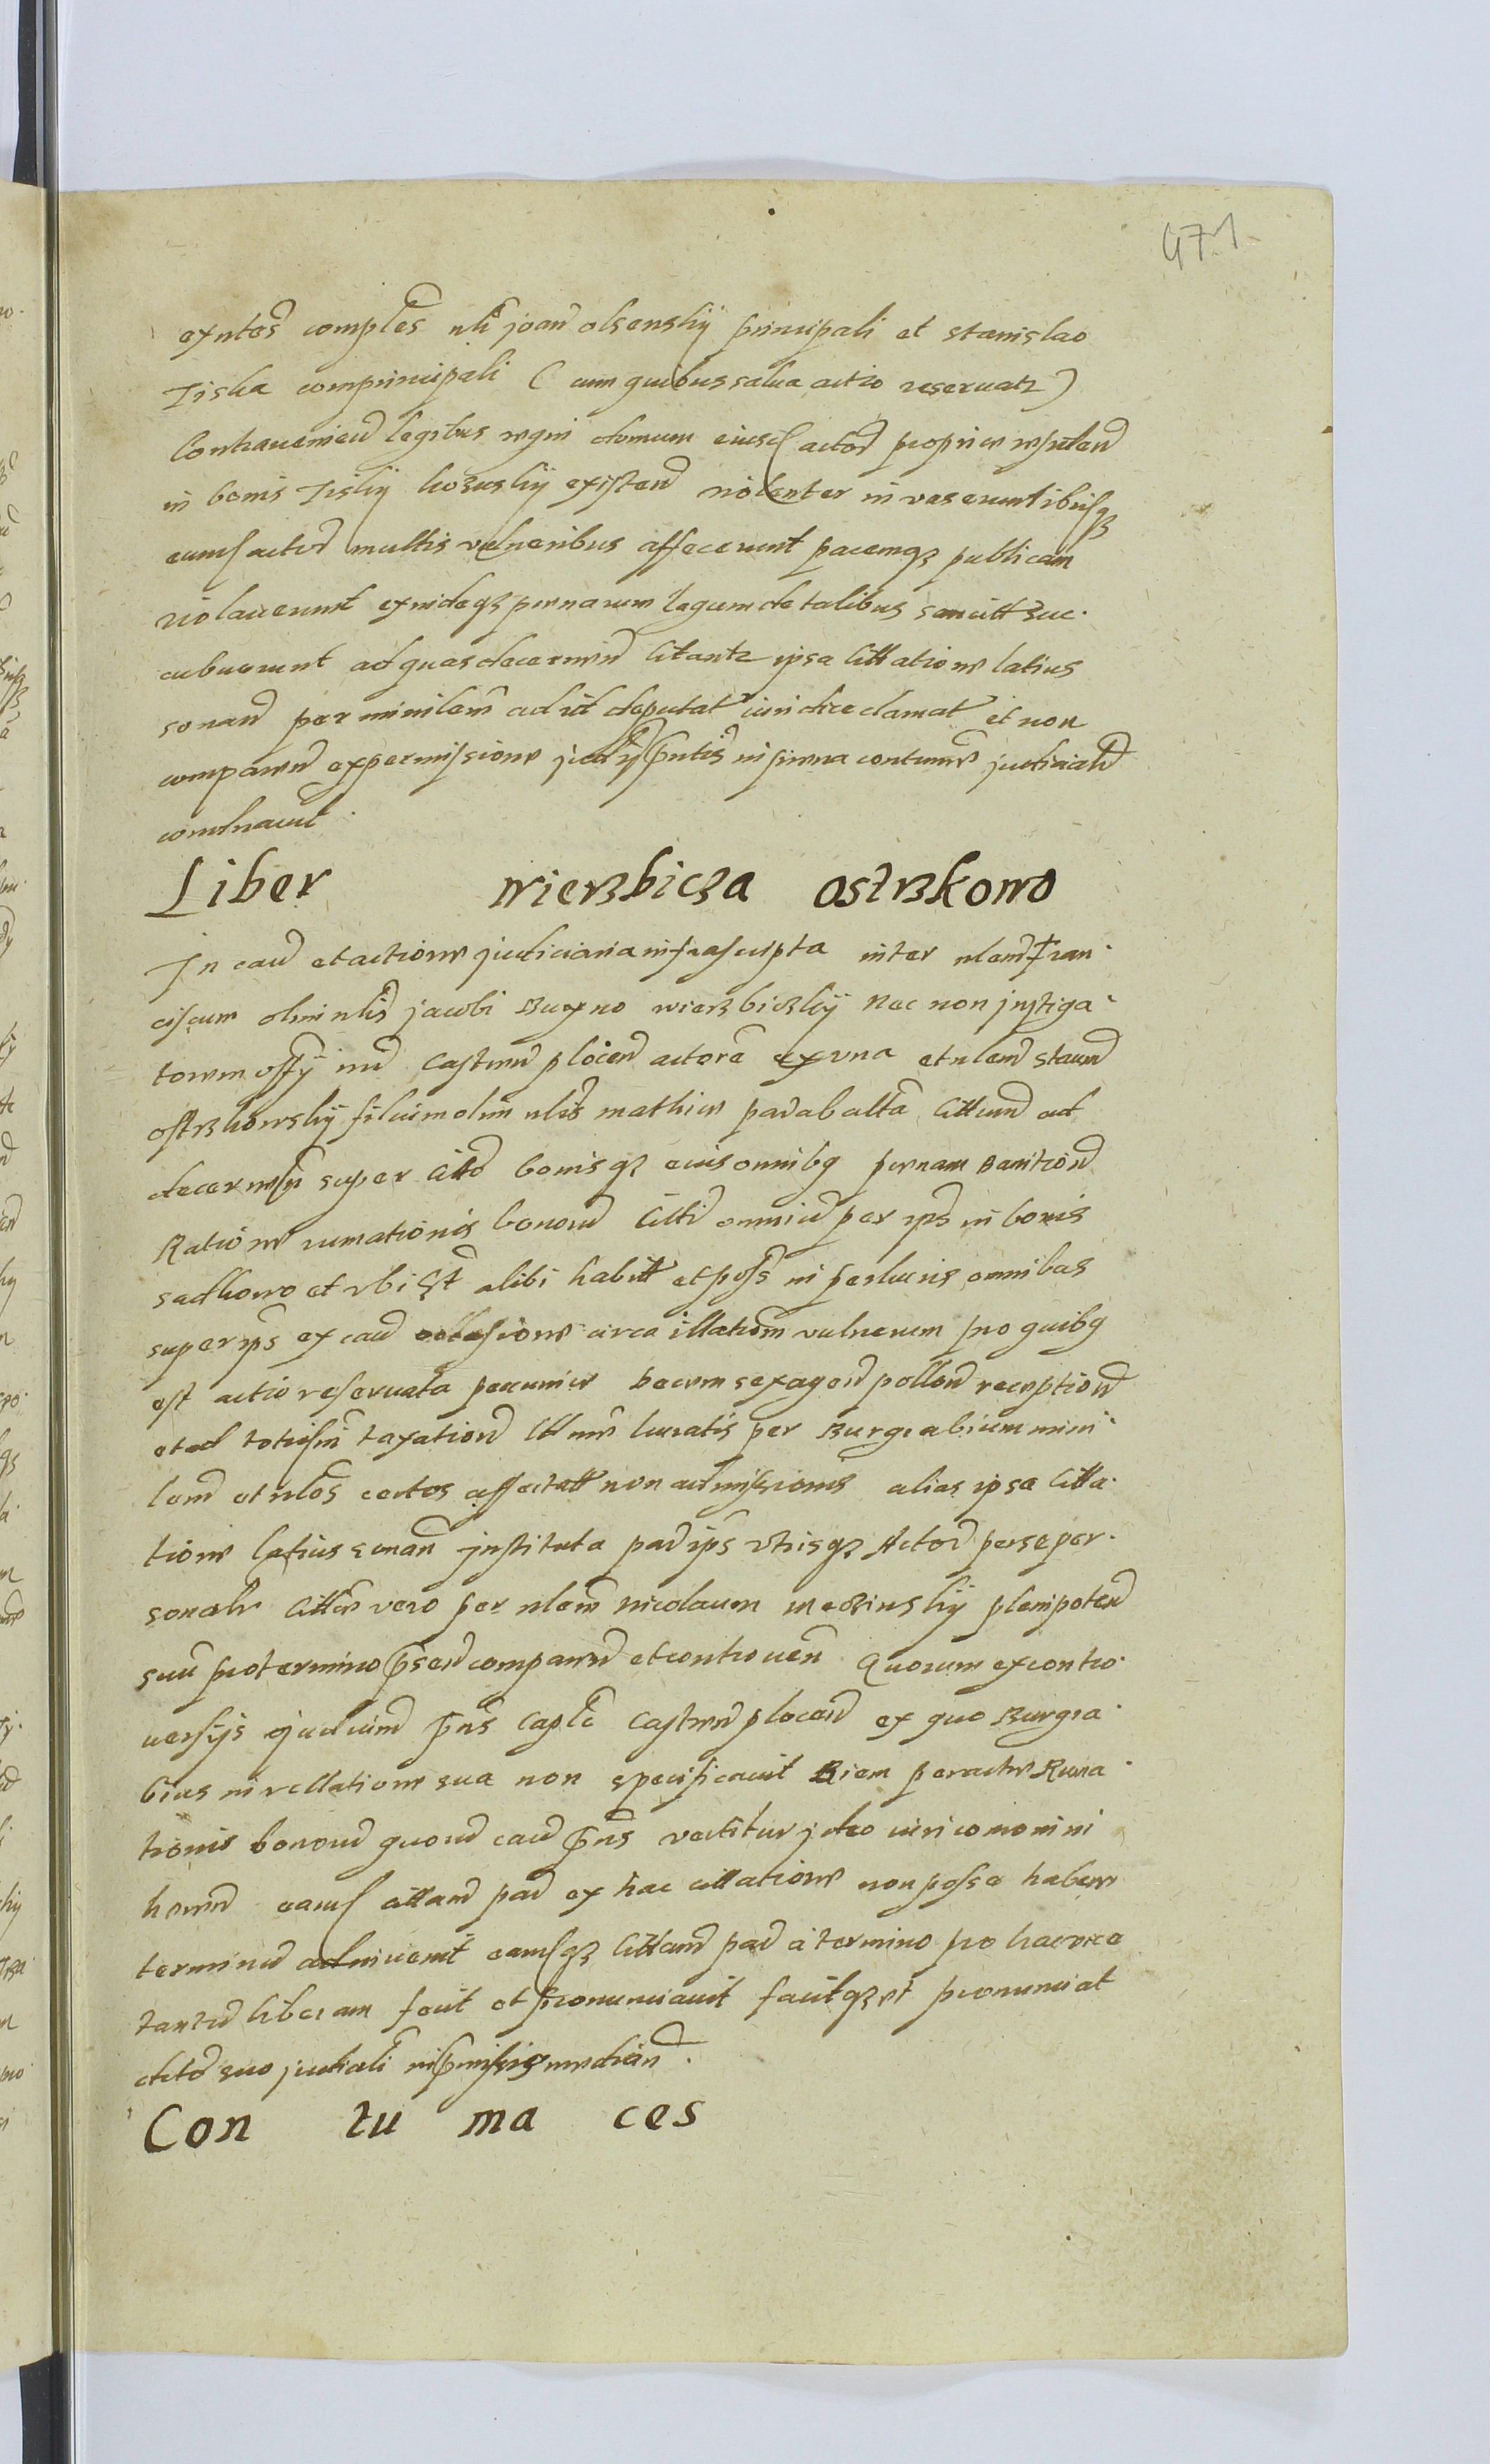 471
exntes comples nli joan olsenskij principali et stanislao
Tiska comprincipali ( cum quibus salua actio reseruatr )
Contraueniend legibus regni domum eiusd actor propriae residen
in bonis Tiskij kozuskij existen violenter invaserunt ibiq3
eund actor multis vulneribus affecerunt pacemq3 publicam
violauerunt exindeq3 poenarum legum de talibus sancitt suc.
cubuerunt ad quas decernen citantr ipsa cittatione latius
sonan per minilem ad id deputat juridice clamat et non
comparen ex permissione judij pntis in poena contumae judicialr
comdnauit.
Liber wierzbicza ostrzkowo
In cau et actione judiciaria infrascripta inter nlem Fran.
ciscum olim nlis jacobi Buxno wierzbiczkij nec non jnstiga.
torem offij jud Castren plocen actore ex vna et nlem stanu
ostrzkowskij filium olim nlis mathiae par ab alta cittum ad
decernen super citto bonisq3 eius omnibq poenam Banition
Ratione rumationis bonoru citti omniu per ips in bonis
sadkowo et vbi est alibi habitt et poss in peskuris omnibus
super ips ex cau occasione circa illationem vulnerum pro quibq
est actio reseruata pecuniae trecem sexagen pollon reception
et ad totius taxation litt lucratis per Burgrabium mini.
lem et nlos certos affectatt non admissionis alias ipsa citta.
tione latius sonan jnstituta par ips vtrisq3 Actor per se per.
sonalr cittus vero per nlem nicolaum meczinskij plenipoten
suu pro termino psen comparen et controuen Quorum ex contro.
uersijs judicium pns Caple Castren plocen ex quo Burgra.
bius in rellatione sua non specificauit Riem peractae Ruma.
tionis bonoru quoru cau pns vertitur jdeo
eand cittam par ex hac cittatione non posse habere
terminu adinuenit eandq3 cittam par a termino pro hac vice
tantu liberam fecit et pronunciauit facitq3 et pronunciat
decto suo judiciali in pmissis median.
Con tu ma ces